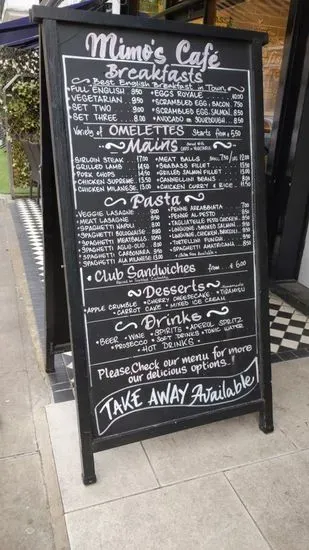 Mimo's Café
Breakfasts
Best English Breakfast in Town
FULL ENGLISH 9.50 • EGGS ROYALE 10.00
VEGETARIAN 9.50 • SCRAMBLED EGG, BACON 7.50
SET TWO 9.00 • SCRAMBLED EGG, SALMON 8.50
SET THREE 8.00 • AVOCADO ON SOURDOUGH
Variety of OMELETTES Starts from £ 5,50
Mains
SIRLOIN STEAK 17.00 • MEAT BALLS
GRILLED LAMB 14.50 • SEABASS FILET
PORK CHOPS • GRILLED SALMON FILLET
CHICKEN SUPREME 13.50 • CANNELLINI BEANS
CHICKEN MILANESE 13.50 • CHICKEN CURRY & RICE
Pasta
VEGGIE LASAGNE • PENNE ARRABBIATA
MEAT LASAGNE • PENNE AL PESTO
SPAGHETTI NAPOLI • TAGLIATELLE PESTO CHICKEN
SPAGHETTI BOLOGNAISE • LINGUINE, SMOKED SALMON
SPAGHETTI MEATBALLS • LINGUINE, CHICKEN, BROCCOLI
SPAGHETTI AGLIO-OLIO • TORTELLINI FUNGHI
SPAGHETTI CARBONARA • SPAGHETTI AMATRICIANA
SPAGHETTI ALLA MILANESE
• Club Sandwiches from £ 6,00
Desserts
• APPLE CRUMBLE • CHERRY CHEESECAKE • TIRAMISU
• CARROT CAKE • MIXED ICE CREAM
Drinks
• BEER • WINE • SPIRITS • APEROL SPRITZ
• PROSECCO • SOFT DRINKS & TONIC WATER
• HOT DRINKS •
Please, Check our menu for more
our delicious options!
TAKE AWAY Available